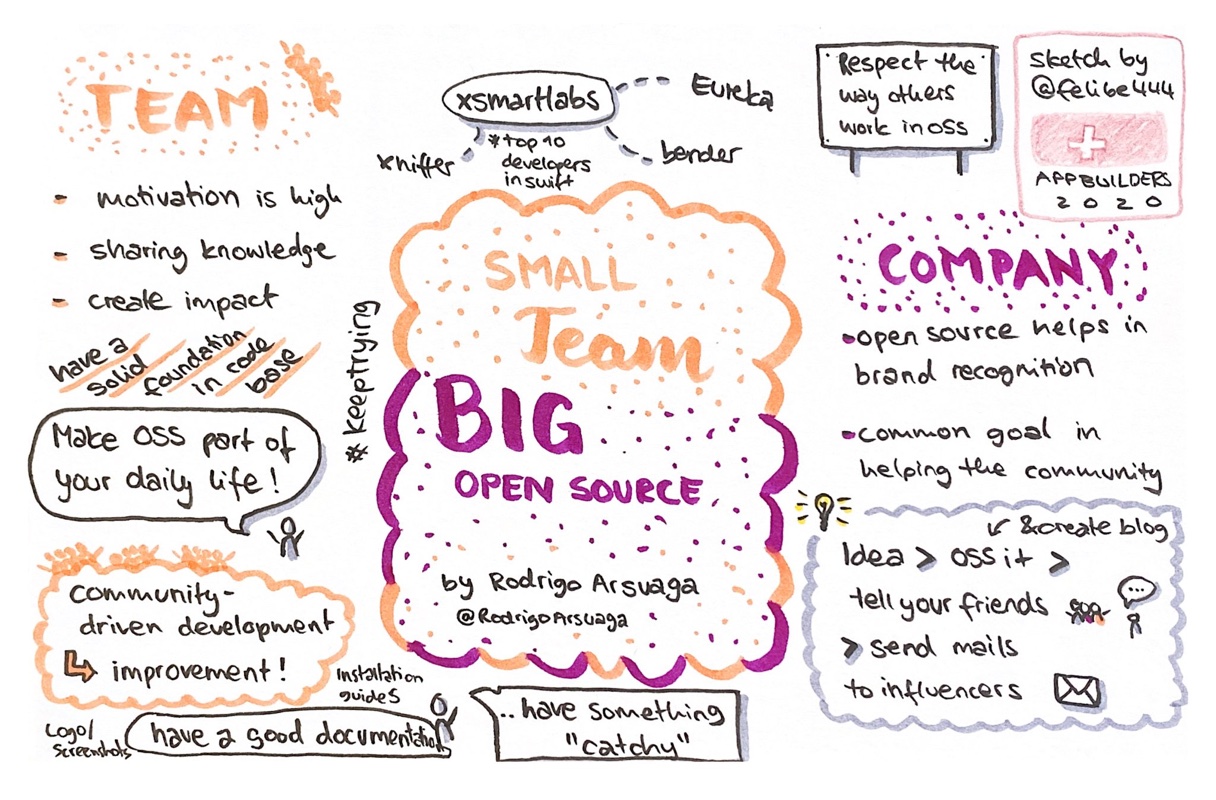 TEAM
- motivation is high
- sharing knowledge
- create impact
have a
solid
foundation
in code
base
Make OSS part of
your daily life!
community-
driven development
improvement!
Installation
guides
Logo/
Screenshots
have a good documentation
#keeptrying
xsmartlabs
Eureka
bender
xniffer
*top 10
developers
in swift
SMALL
Team
BIG
OPEN SOURCE
by Rodrigo Arsuaga
@RodrigoArsuaga
..have something
"catchy"
Respect the
way others
work in OSS
sketch by
@felibe444
APPBUILDERS
2020
COMPANY
•open source helps in
brand recognition
•common goal in
helping the community
&create blog
Idea > OSS it >
tell your friends
> send mails
to influencers